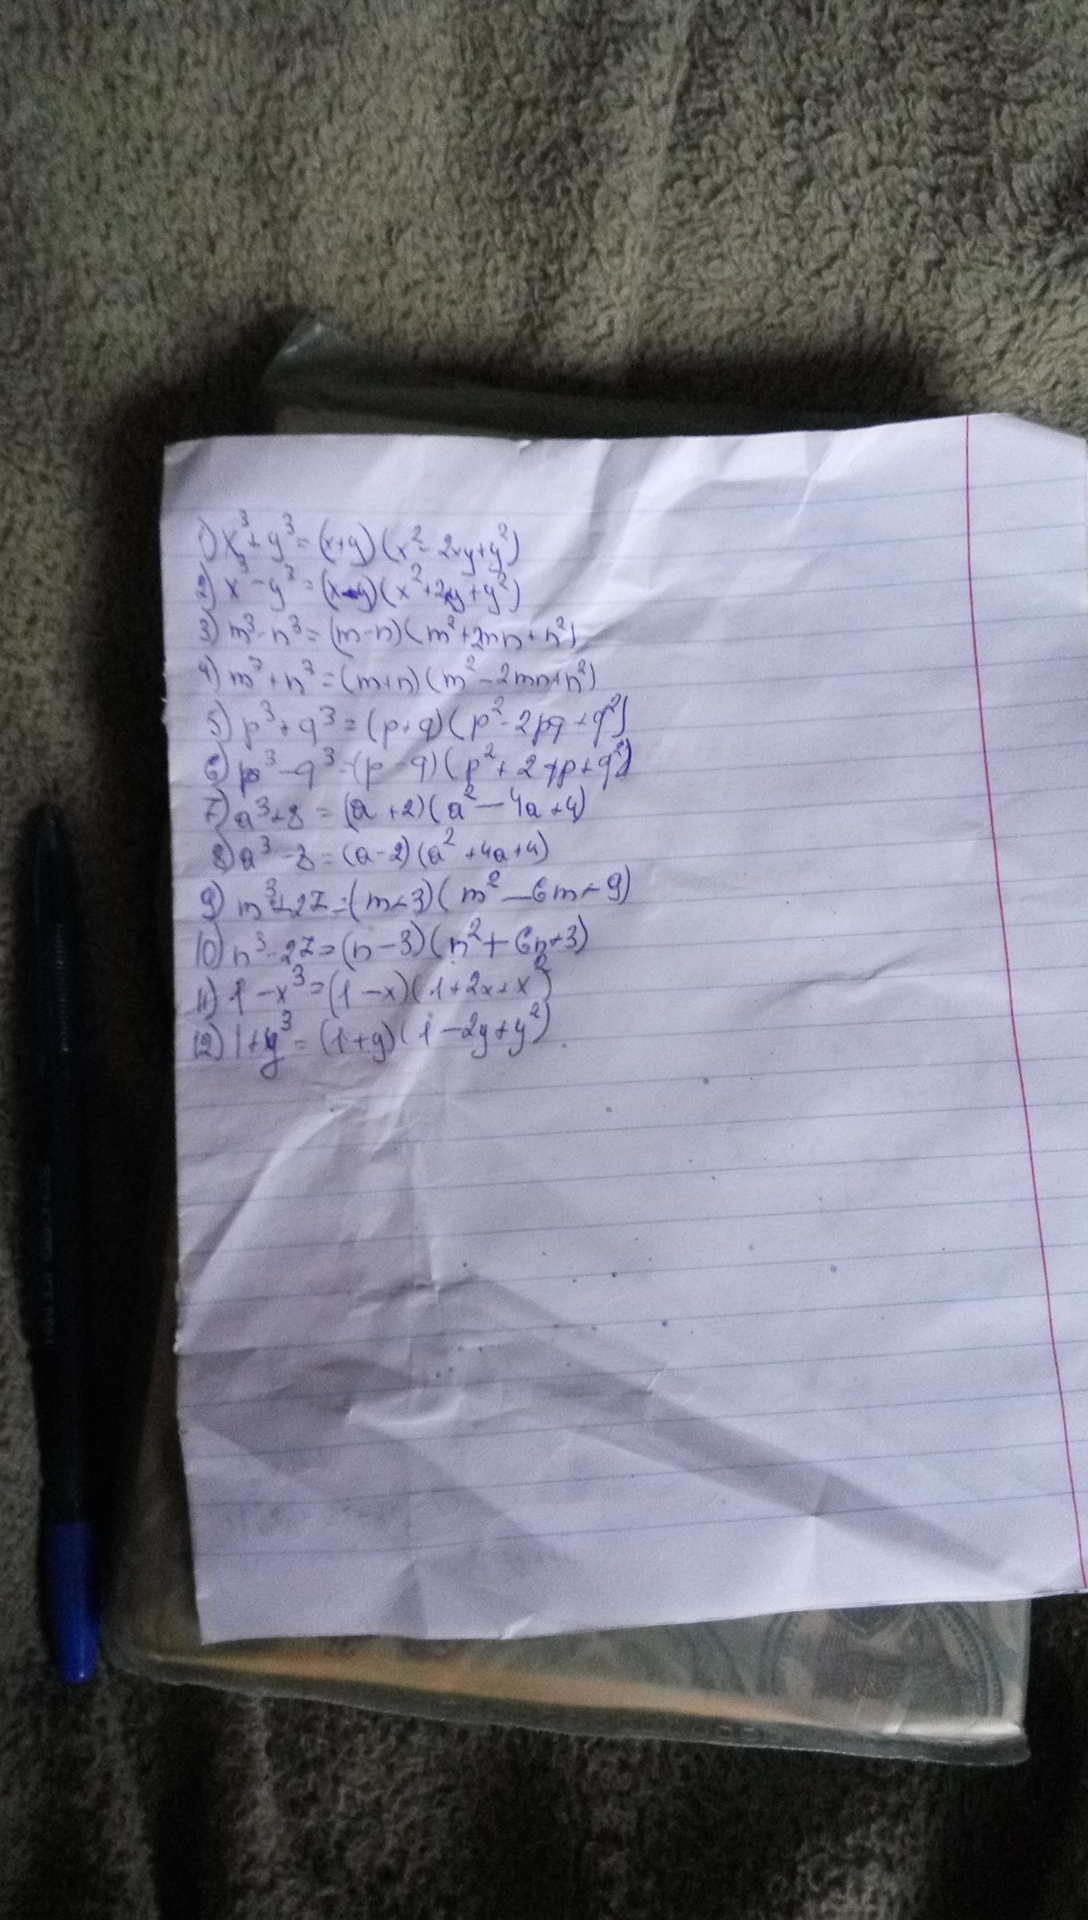 1) x³+y³=(x+y)(x²-2xy+y²)
2) x³-y³=(x-y)(x²+2xy+y²)
3) m³-n³=(m-n)(m²+2mn+n²)
4) m³+n³=(m+n)(m²-2mn+n²)
5) p³+q³=(p+q)(p²-2pq+q²)
6) p³-q³=(p-q)(p²+2qp+q²)
7) a³+8=(a+2)(a²-4a+4)
8) a³-8=(a-2)(a²+4a+4)
9) m³+27=(m+3)(m²-6m+9)
10) n³-27=(n-3)(n²+6n+3)
11) 1-x³=(1-x)(1+2x+x²)
12) 1+y³=(1+y)(1-2y+y²)